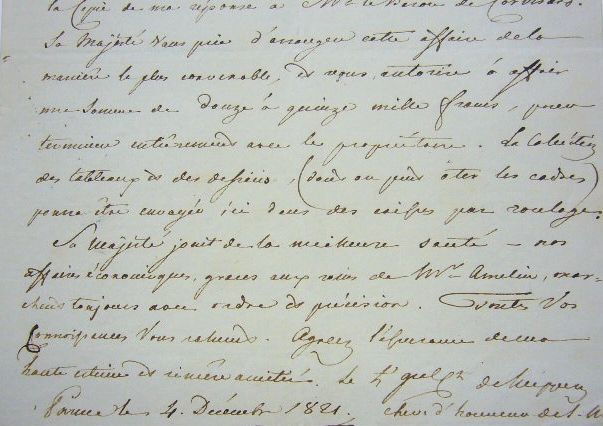 la Copie de ma réponse à Mr le Baron de Corvisart.
Sa Majesté Vous prie d'arranger cette affaire de la
manière la plus convenable, et vous autorise à offrir
une Somme de douze à quinze mille francs, pour
terminer entièrement avec le propriétaire. La Colection
des tableaux et des dessins, (dont on peut ôter les cadres)
pourra être envoyée ici dans des caisses par roulage.
Sa Majesté jouit de la meilleure santé - nos
affaires économiques, graces aux soins de Mr Amelin, mar-
chent toujours avec ordre et précision. Toutes Vos
Connoissances Vous saluent. Agréez l'assurance de ma
haute estime et sincère amitié. Le
Parme le 4. Décembre 1821. Chevr d'honneur de S. M